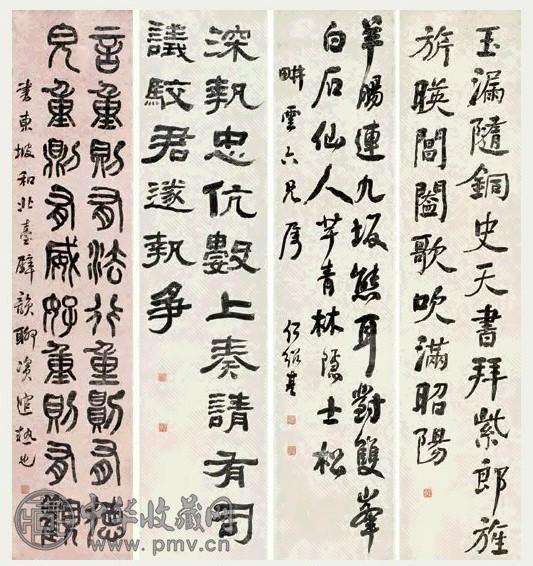 玉漏隨銅史天書拜紫郎旌
旂暎閶闔歌吹滿昭陽
羊腸連九坂熊耳對雙峯
白石仙人芋青林隱士松
畊雲六兄屬 何紹基
深執忠伉數上奏請有司
議駮君遂執爭
言重則有法行重則有德
皃重則有威好重則有觀
書東坡和北臺壁韻聊 也
中华收藏网
www.pmv.cn